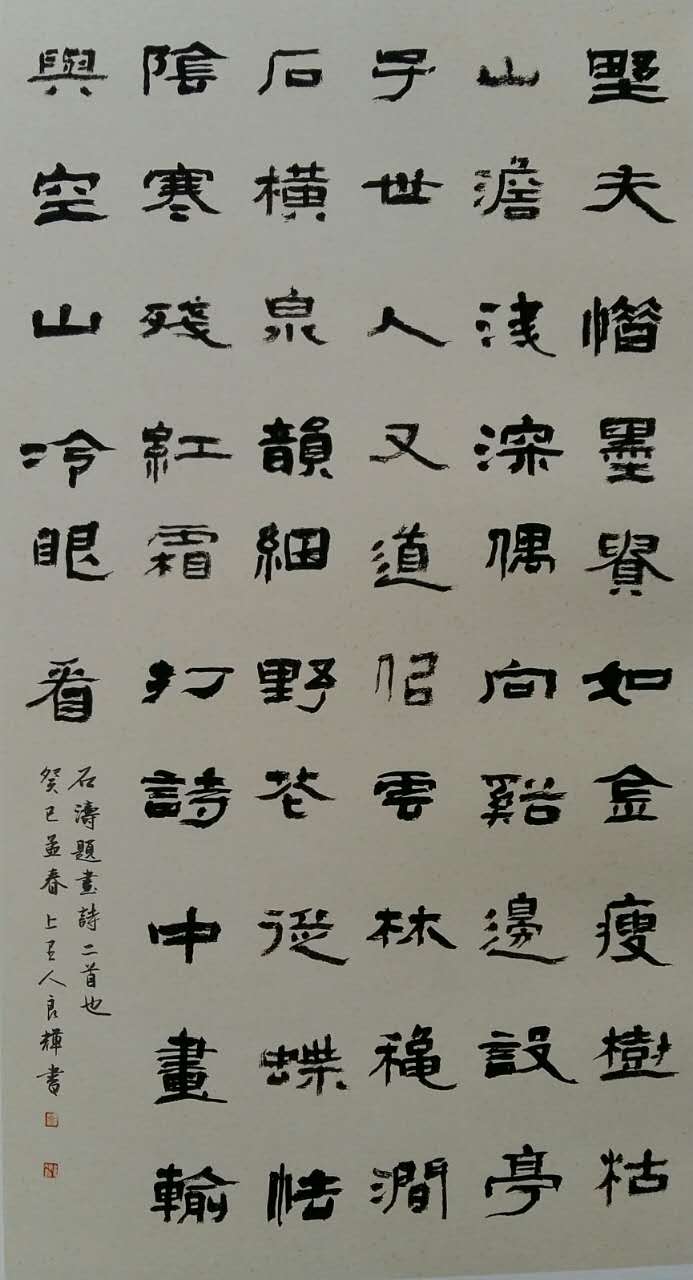 墅夫惜墨貴如金瘦樹枯
山澹淺深偶向谿邊設亭
子世人又道似雲林穐澗
石橫泉韻細野花從蝶怯
陰寒殘紅霜打詩中畫輸
與空山冷眼看
石濤題畫詩二首也
癸巳孟春上王人良輝書